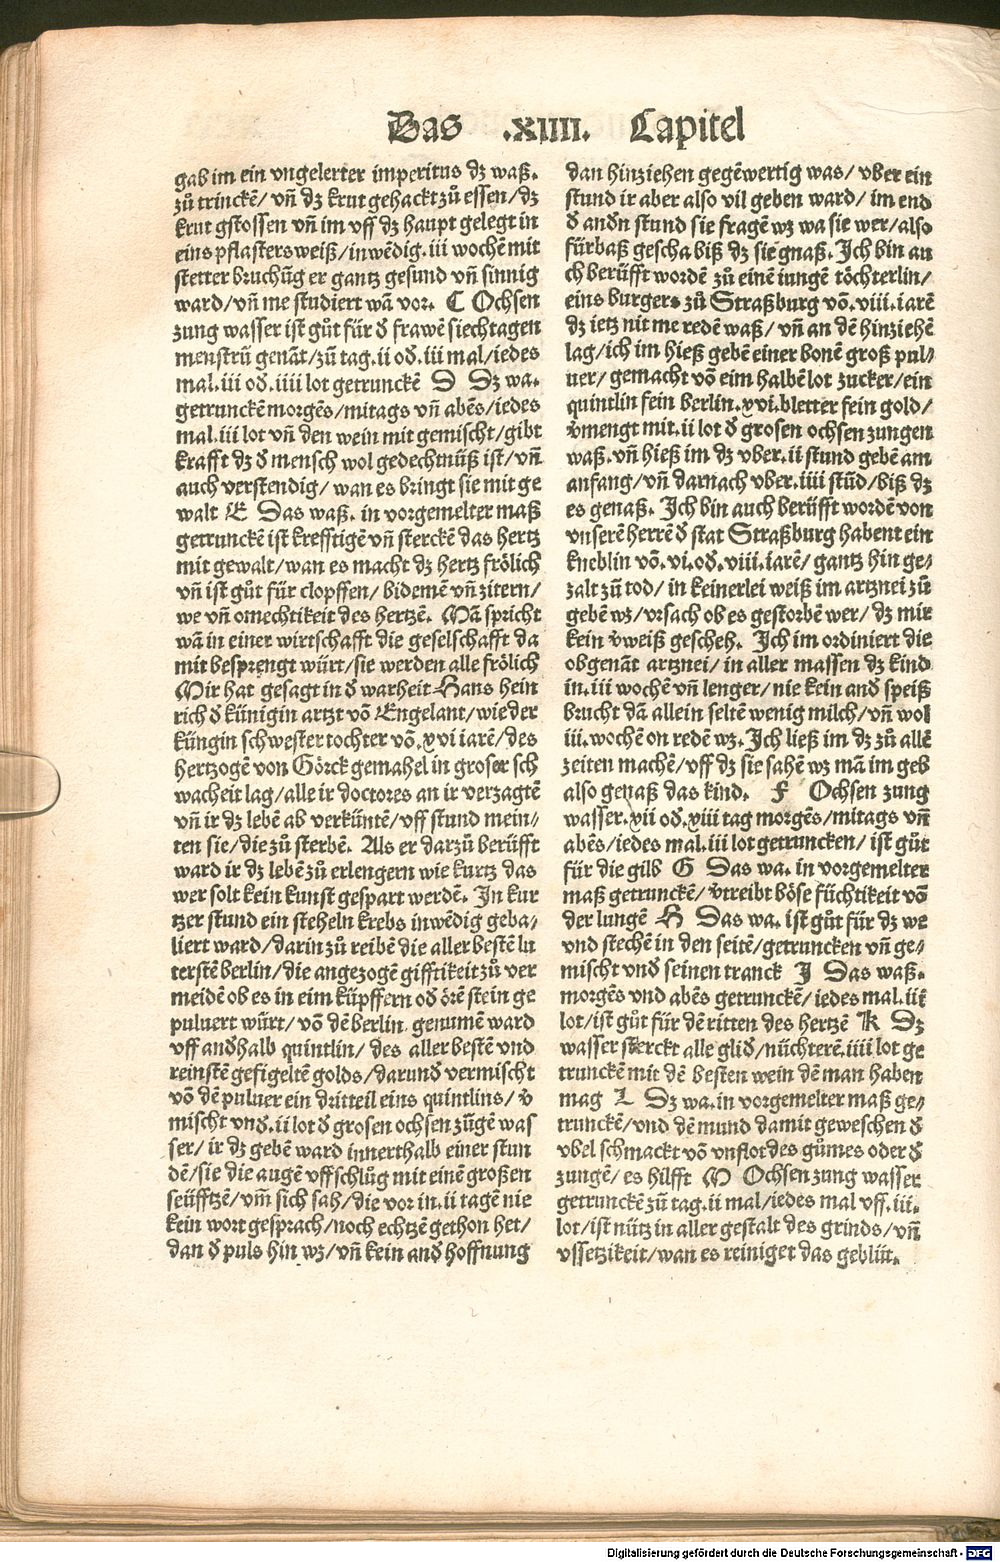 Das .xiiii. Capitel
gab im ein vngelerter imperitus dz waß.
zů trinckē/ vñ dz krut gehackt zů essen/ dz
krut gstossen vñ im vff dz haupt gelegt in
eins pflasters weiß/ inwēdig .iii wochē mit
stetter bruchūg er gantz gesund vñ sinnig
ward/ vñ me studiert wā vor. C Ochsen
zung wasser ist gůt für d̄ frawē siechtagen
menstrū genāt/ zū tag .ii od̄ .iii mal/ iedes
mal .iii od̄ .iiii lot getrunckē D Dz wa.
getrunckē morgēs/ mitags vñ abēs/ iedes
mal .iii lot vñ den wein mit gemischt/ gibt
krafft dz d̄ mensch wol gedechtnüß ist/ vñ
auch verstendig/ wan es bringt sie mit ge
walt E Das waß. in vorgemelter maß
getrunckē ist krefftigē vñ sterckē das hertz
mit gewalt/ wan es macht dz hertz frölich
vñ ist gůt für clopffen/ bidemē vñ zitern/
we vñ omechtikeit des hertzē. Mā spricht
wā in einer wirtschafft die geselschafft da
mit besprengt würt/ sie werden alle frölich
Mir hat gesagt in d̄ warheit Hans hein
rich d̄ künigin artzt vō Engelant/ wie der
küngin schwester tochter vō .xvi iarē/ des
hertzogē von Görck gemahel in groser sch
wacheit lag/ alle ir doctores an ir verzagtē
vñ ir dz lebē ab verkūntē/ vff stund mein/
ten sie/ die zů sterbē. Als er darzů berüfft
ward ir dz lebē zů erlengern wie kurtz das
wer solt kein kunst gespart werdē. In kur
tzer stund ein steheln krebs inwēdig geba/
liert ward/ darin zů reibē die aller bestē lu
terstē berlin/ die angezogē gifftikeit zů ver
meidē ob es in eim küpffern od̄ örē stein ge
puluert würt/ vō dē berlin genumē ward
vff and̄halb quintlin/ des aller bestē vnd
reinstē gefigeltē golds/ darund̄ vermischt
vō dē puluer ein dritteil eins quintlins/ v̄
mischt vnd̄ .ii lot d̄ grosen ochsen zūgē was
ser/ ir dz gebē ward innerthalb einer stun
dē/ sie die augē vff schlůg mit einē großen
seüfftzē/ vm̄ sich sah/ die vor in .ii tagē nie
kein wort gesprach/ noch echtzē gethon het/
dan d̄ puls hin wz/ vñ kein and̄ hoffnung
dan hinziehen gegēwertig was/ vber ein
stund ir aber also vil geben ward/ im end
d̄ andn stund sie fragē wz wa sie wer/ also
fürbaß gescha biß dz sie gnaß. Ich bin au
ch berüfft wordē zů einē iungē töchterlin/
eins burgers zů Straßburg vō .viii. iarē
dz ietz nit me redē waß/ vñ an dē hinziehē
lag/ ich im hieß gebē einer bonē groß pul/
uer/ gemacht vō eim halbē lot zucker/ ein
quintlin fein berlin .xvi. bletter fein gold/
v̄mengt mit .ii lot d̄ grosen ochsen zungen
waß. vñ hieß im dz vber .ii stund gebē am
anfang/ vñ darnach vber .iiii stūd/ biß dz
es genaß. Ich bin auch berüfft wordē von
vnserē herrē d̄ stat Straßburg habent ein
kneblin vō .vi. od̄ .viii. iarē/ gantz hin ge/
zalt zū tod/ in keinerlei weiß im artznei zů
gebē wz/ vrsach ob es gestorbē wer/ dz mir
kein v̄weiß gescheh. Ich im ordiniert die
obgenāt artznei/ in aller massen dz kind
in .iii wochē vñ lenger/ nie kein and̄ speiß
brucht dā allein seltē wenig milch/ vñ wol
iii. wochē on redē wz. Ich ließ im dz zů allē
zeiten machē/ vff dz sie sahē wz mā im geb
also genaß das kind. F Ochsen zung
wasser .xii od̄ .xiii tag morgēs/ mitags vñ
abēs/ iedes mal .iii lot getruncken/ ist gůt
für die gilb G Das wa. in vorgemelter
maß getrunckē/ v̄treibt böse füchtikeit vō
der lungē H Das wa. ist gůt für dz we
vnd stechē in den seitē/ getruncken vñ ge/
mischt vnd̄ seinen tranck I Das waß.
morgēs vnd abēs getrunckē/ iedes mal .iii
lot/ ist gůt für dē ritten des hertzē K Dz
wasser sterckt alle glid̄/ nüchterē .iiii lot ge
trunckē mit dē besten wein dē man haben
mag L Dz wa. in vorgemelter maß ge/
trunckē/ vnd dē mund damit geweschen d̄
vbel schmackt vō vnflot des gůmes oder d̄
zungē/ es hilfft M Ochsen zung wasser
getrunckē zū tag .ii mal/ iedes mal vff .iii.
lot/ ist nütz in aller gestalt des grinds/ vñ
vssetzikeit/ wan es reiniget das geblüt.
Digitalisierung gefördert durch die Deutsche Forschungsgemeinschaft - DFG